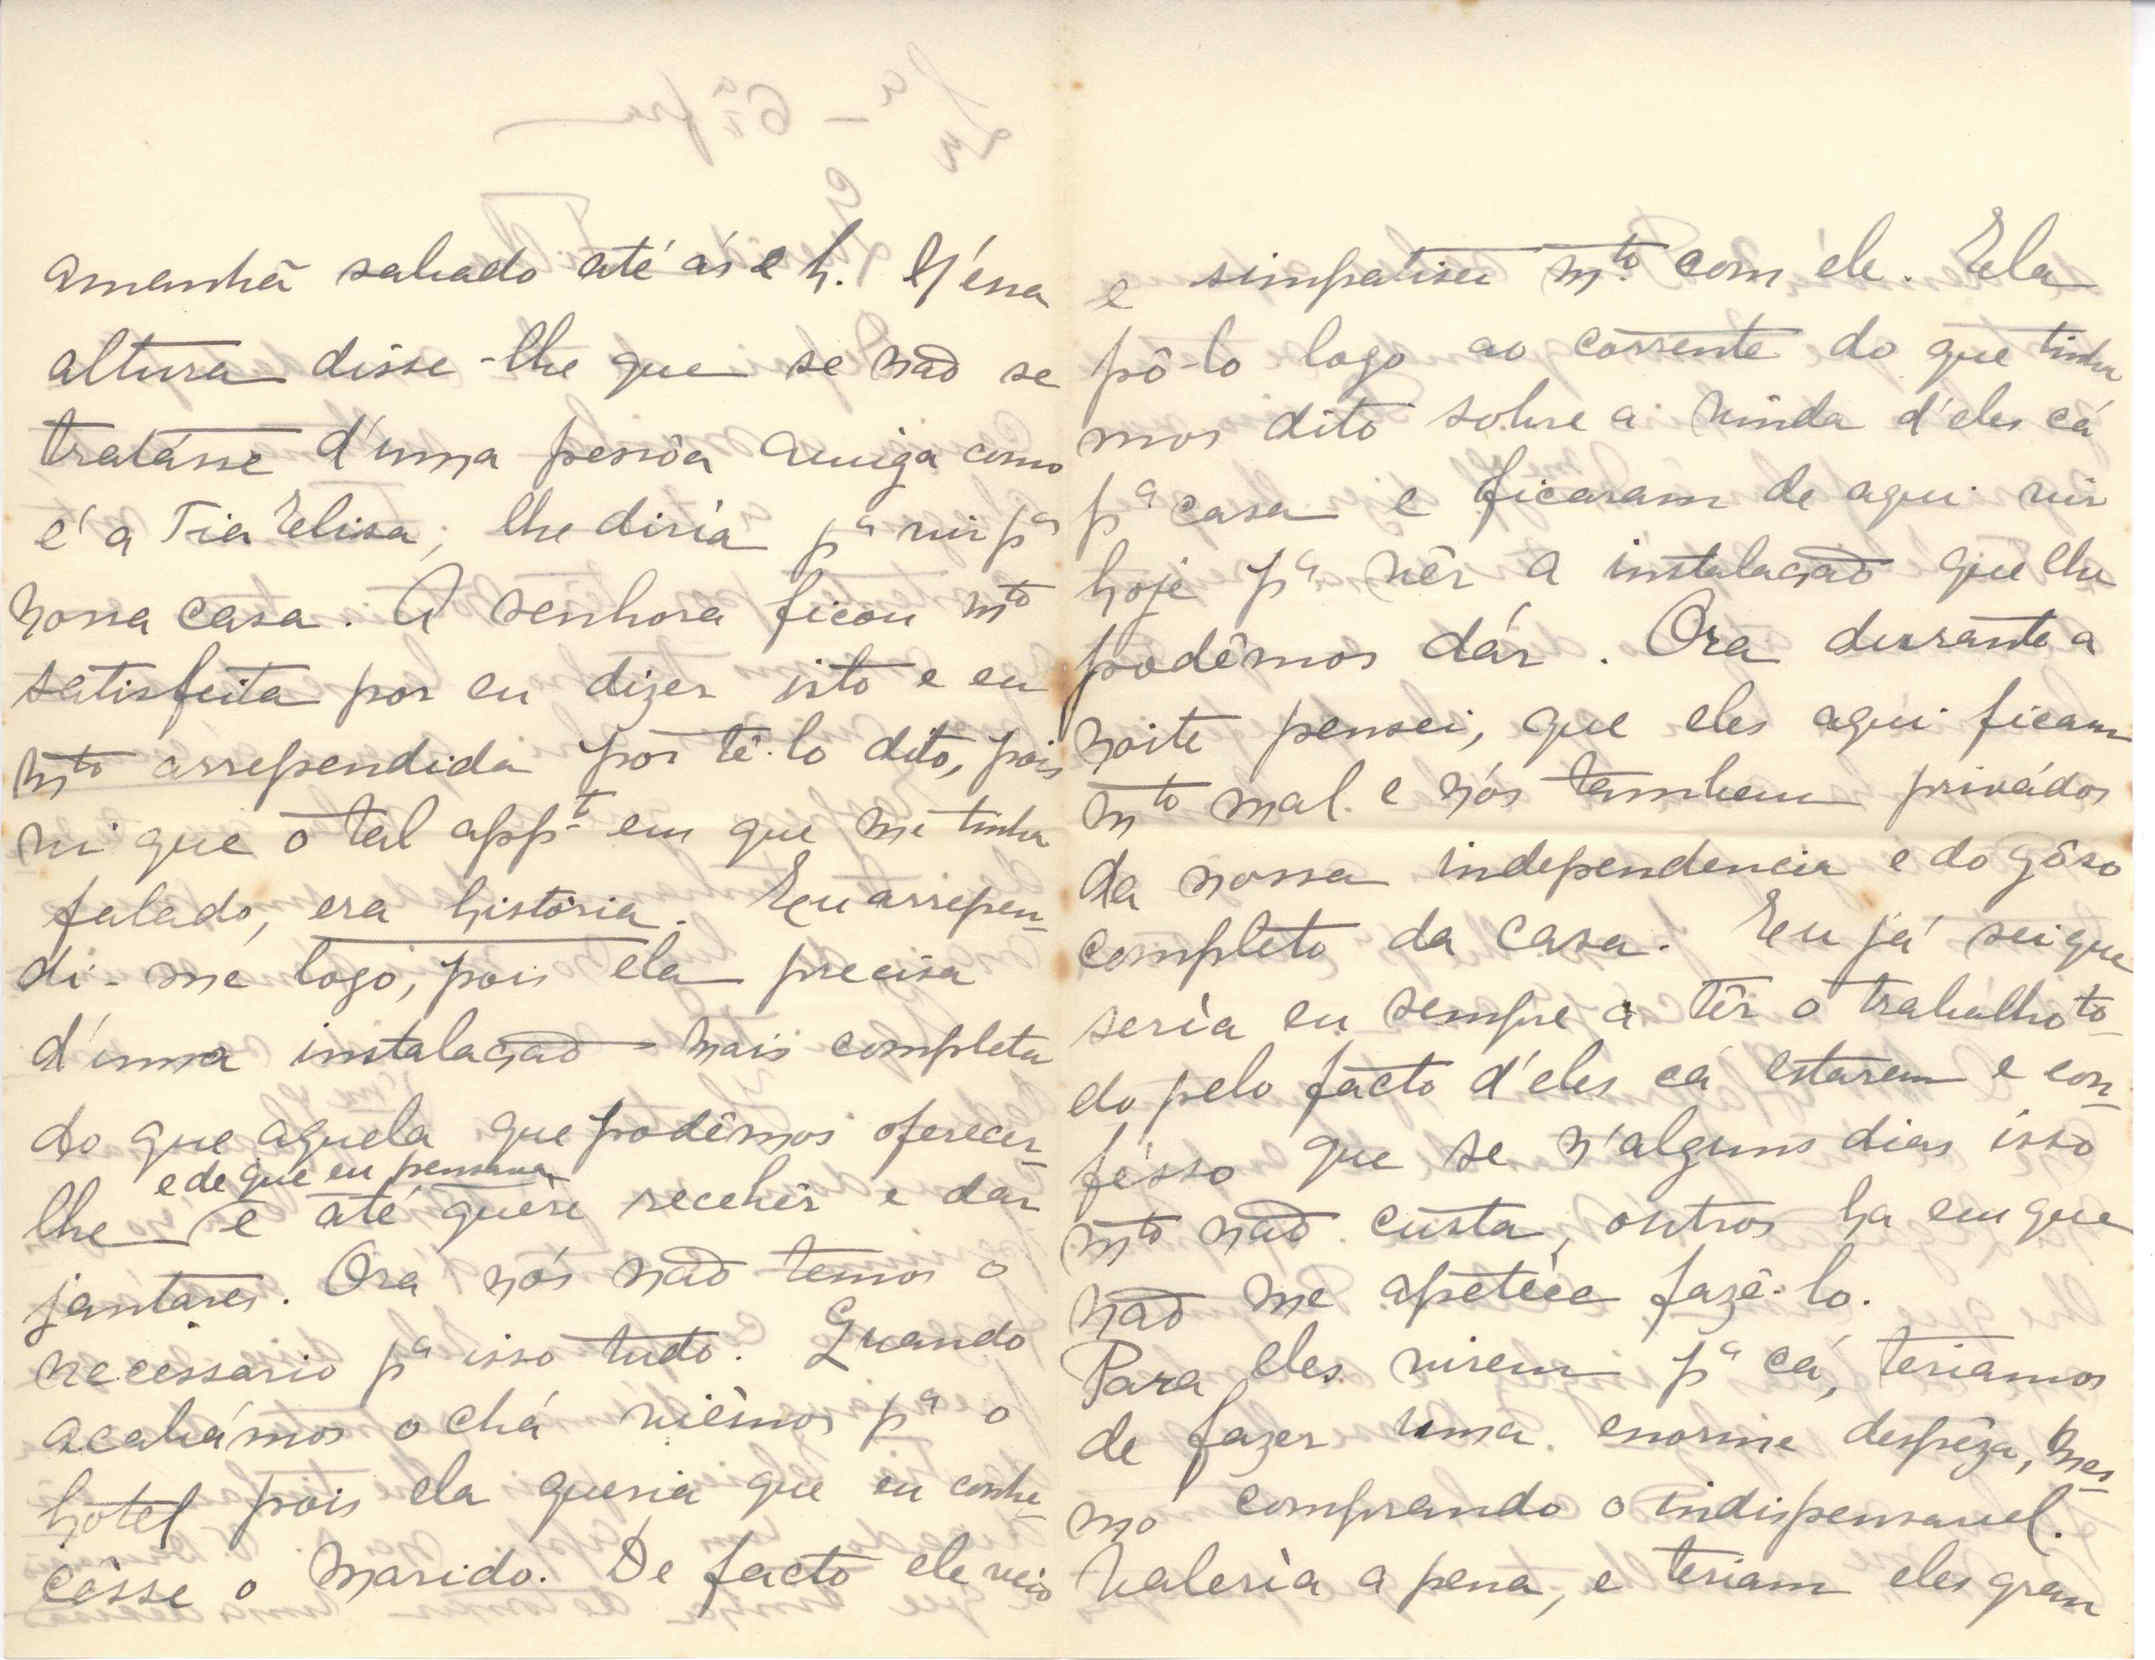 amanhã sabado até ás e h. N'éssa
altura disse-lhe que se não se
tratásse d'uma pessôa amiga como
é a Tia Elisa, lhe diria pª vir pª
nossa casa. A senhora ficou mto
satisfeita por eu dizer isto e eu
mto arrependida por tê-lo dito, pois
vi que o tal appt em que me tinha
falado, era história. Eu arrepen-
di-me logo, pois ela precisa
d'uma instalação mais completa
do que aquela que podêmos oferecer-
e de que eu pensava
lhe e até quére recebêr e dar
jantares. Ora nós não temos o
necessario pª isso tudo. Quando
acabámos o chá viémos pª o
hotel pois ela queria que eu conhe-
cêsse o marido. De facto ele veio
e simpatisei mto com êle. Ela
pô-lo logo ao corrente do que tinha
mos dito sobre a vinda d'eles cá
pª casa e ficaram de aqui vir
hoje pª vêr a instalação que lhe
podêmos dár. Ora durrante a
noite pensei, que eles aqui ficam
mto mal e nós tambem privádos
da nossa independencia e do gôso
completo da casa. Eu já sei que
seria eu sempre a têr o trabalho to-
do pelo facto d'eles cá estarem e con-
fésso que se n'alguns dias isso
mto não custa, outros ha em que
não me apetéce fazê-lo.
Para eles virem pª cá, teriamos
de fazer uma enorme despêza, mes-
mo comprando o indispensavel.
Valeria a pena, e teriam eles gran